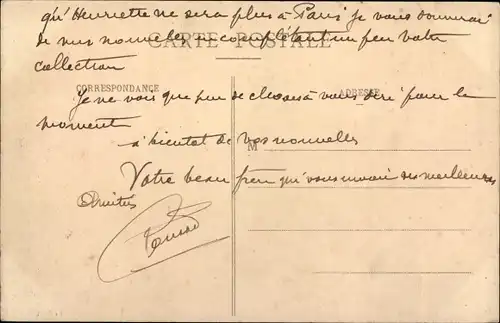 qu'Henriette ne sera plus à Paris je vous donnerai
de mes nouvelles en complétant un peu votre
CARTE POSTALE
collection
CORRESPONDANCE
ADRESSE
Je ne vois que peu de choses à vous dire pour le
moment
à bientot de vos nouvelles
M
Votre beau frere qui vous envoie ses meilleures
Amitiés